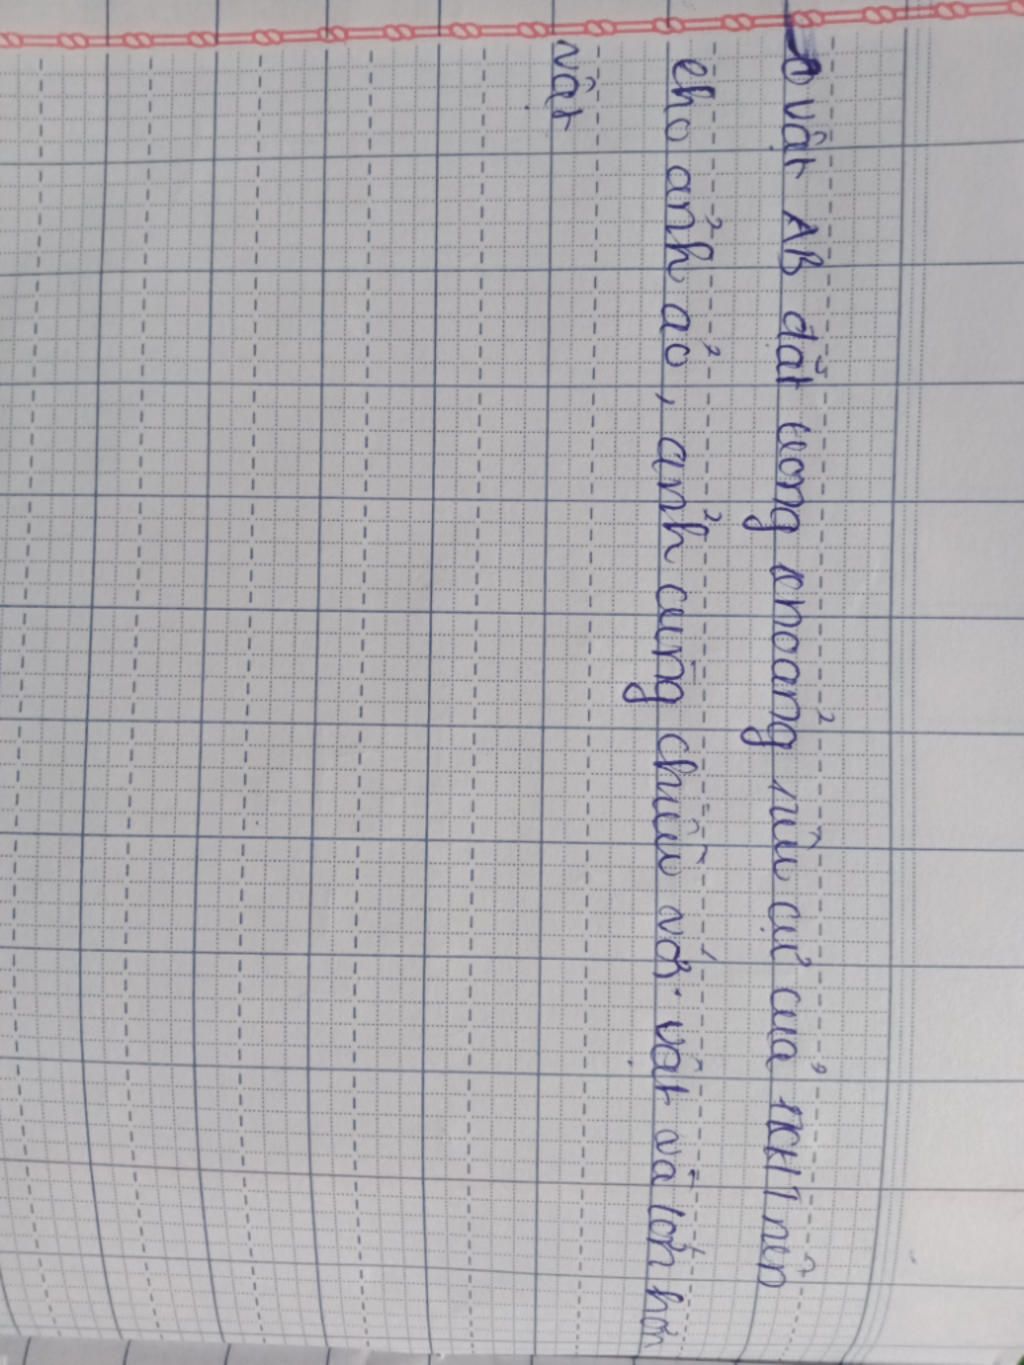 vật AB đặt trong khoảng tiêu cự của TKHT nên
cho ảnh ảo, ảnh cùng chiều với vật và lớn hơn
vật